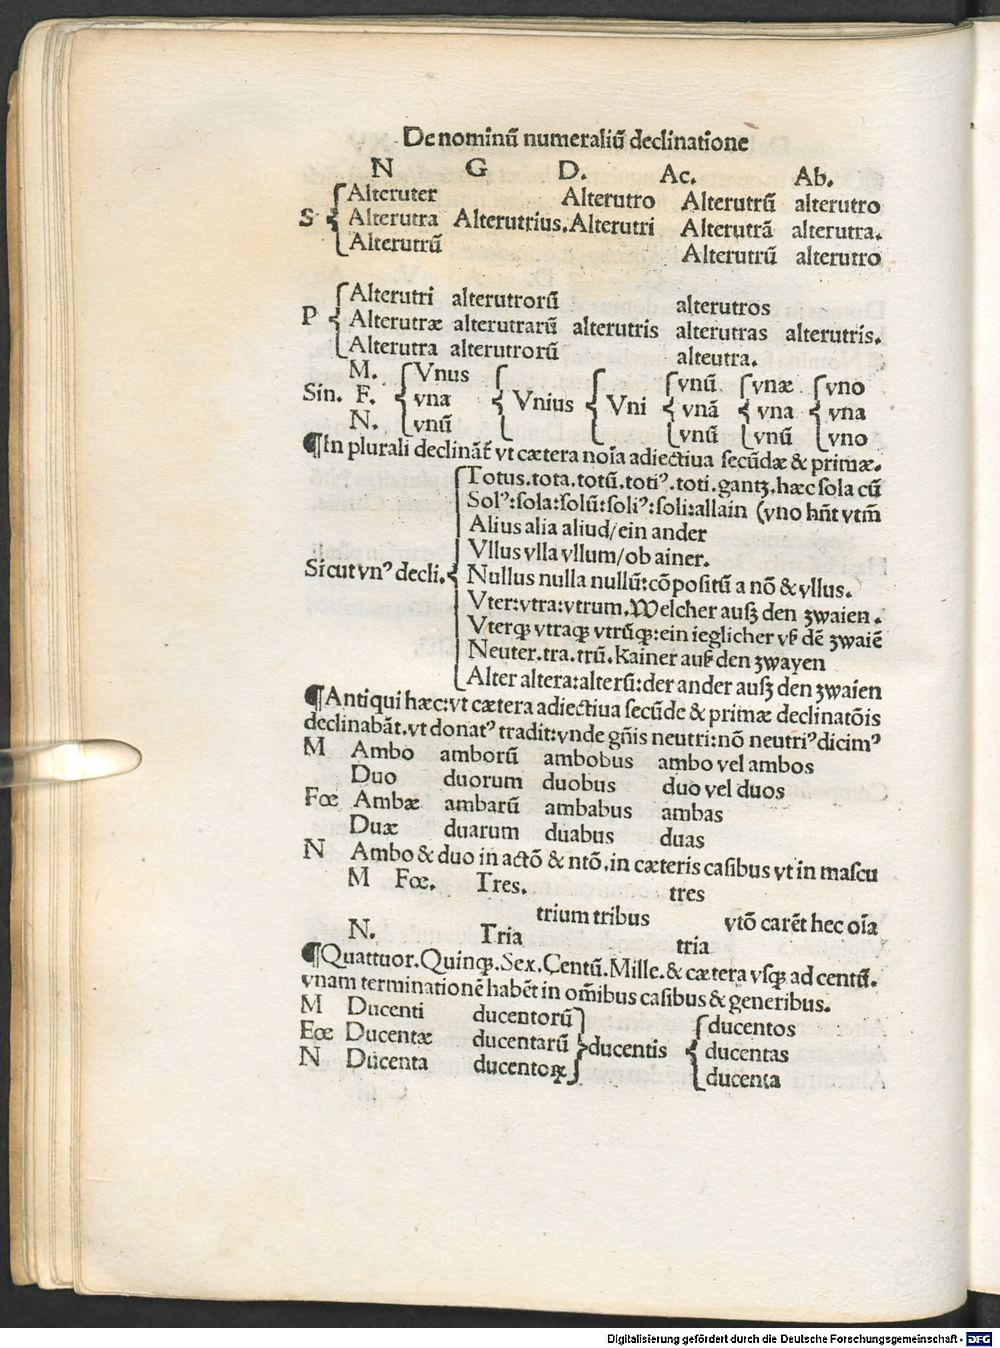 De nominũ numeraliũ declinatione
N G D. Ac. Ab.
Alteruter Alterutro Alterutrũ alterutro
S Alterutra Alterutrius. Alterutri Alterutrã alterutra.
Alterutrũ Alterutrũ alterutro
Alterutri alterutrorũ alterutros
P Alterutræ alterutrarũ alterutris alterutras alterutris.
Alterutra alterutrorũ alteutra.
M. Vnus vnũ vnæ vno
Sin. F. vna Vnius Vni vnã vna vna
N. vnũ vnũ vnũ vno
¶In plurali declinãt᷑ vt cætera noĩa adiectiua ſecũdæ & primæ.
Totus.tota.totũ.toti⁹.toti.gantʒ.hæc ſola cũ
Sol⁹:ſola:ſolũ:ſoli⁹:ſoli:allain (vno hñt vtm̃
Alius alia aliud/ein ander
Vllus vlla vllum/ob ainer.
Sicut vn⁹ decli. Nullus nulla nullũ:cõpoſitũ a nõ & vllus.
Vter:vtra:vtrum.Welcher auſʒ den ʒwaien.
Vterqꝫ vtraqꝫ vtrũqꝫ:ein ieglicher vß dẽ ʒwaiẽ
Neuter.tra.trũ.Kainer auß den ʒwayen
Alter altera:alterũ:der ander auſʒ den ʒwaien
¶Antiqui hæc:vt cætera adiectiua ſecũde & primæ declinatõis
declinabãt.vt donat⁹ tradit:vnde gñis neutri:nõ neutri⁹ dicim⁹
M Ambo amborũ ambobus ambo vel ambos
Duo duorum duobus duo vel duos
Fœ Ambæ ambarũ ambabus ambas
Duæ duarum duabus duas
N Ambo & duo in actõ & ntõ.in cæteris caſibus vt in maſcu
M Fœ. Tres. tres
trium tribus vtõ carẽt hec oĩa
N. Tria tria
¶Quattuor.Quinqꝫ.Sex.Centũ.Mille.& cætera vſqꝫ ad centũ.
vnam terminationẽ habẽt in om̃ibus caſibus & generibus.
M Ducenti ducentorũ ducentos
Eœ Ducentæ ducentarũ ducentis ducentas
N Ducenta ducentoꝝ ducenta
Digitalisierung gefördert durch die Deutsche Forschungsgemeinschaft - DFG